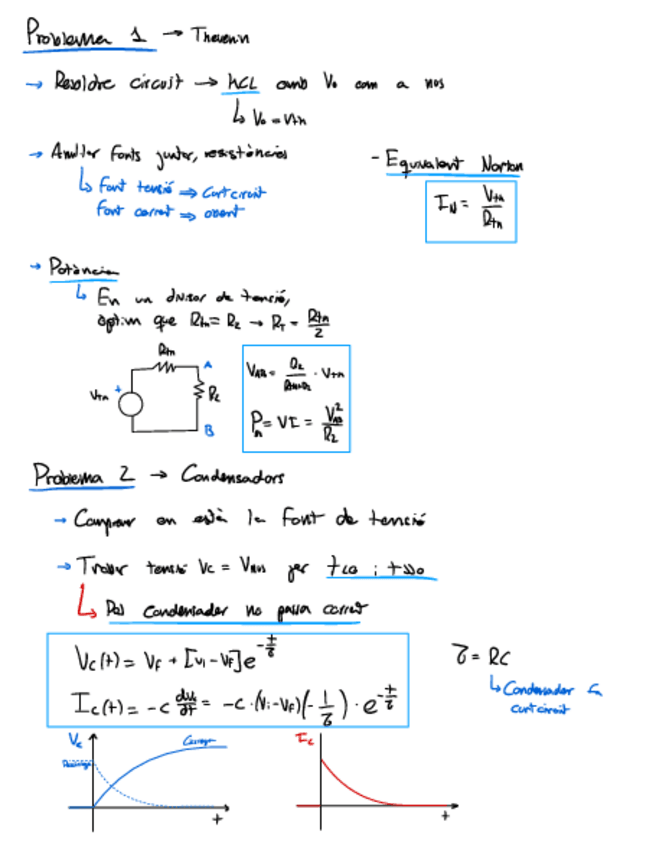 Problema 1 → Thevenin
→ Resoldre circuit → KCL amb Vo com a nus
↳ Vo = Vth
→ Anul·lar fonts juntes, resistències
↳ Font tensió ⇒ Curtcircuit
Font corrent ⇒ obert
- Equivalent Norton
I_N = Vth / Rth
→ Potència
↳ En un divisor de tensió,
òptim que Rth = RL → RT = Rth / 2
Rth
A
Vth +
RL
B
VAB = RL / Rth+RL · Vth
P = VI = VAB² / RL
Problema 2 → Condensadors
→ Comprovar on està la font de tensió
→ Trobar tensió Vc = Vnus per t<0 i t>>0
↳ Pel condensador no passa corrent
Vc(t) = Vf + [Vi - Vf] e^(-t/τ)
Ic(t) = -C dVc/dt = -C · (Vi - Vf)(-1/τ) · e^(-t/τ)
τ = RC
↳ Condensador
curtcircuit
Vc
Carrega
Descarrega
t
Ic
t